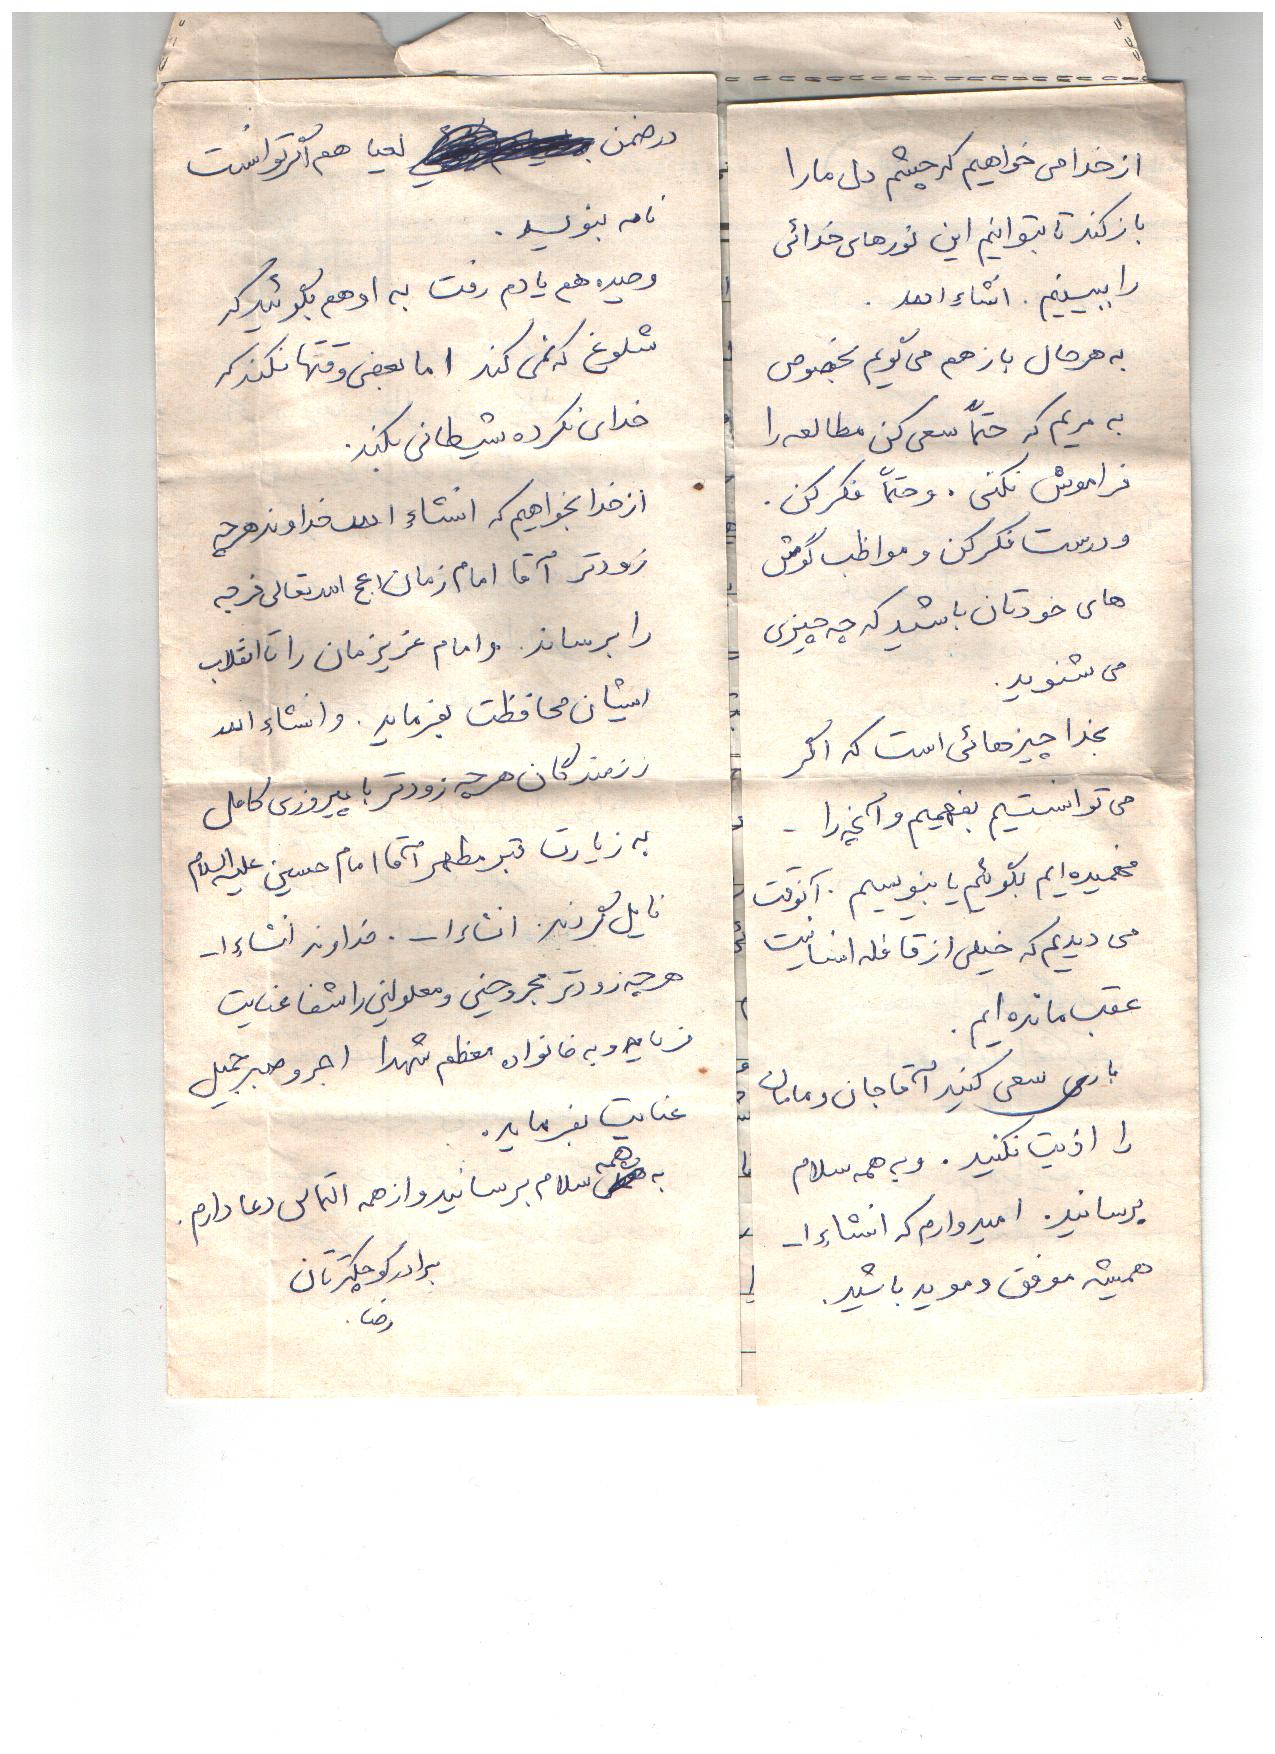 از خدا می خواهیم که چشم دل ما را
باز کند تا بتوانیم این نورهای خدائی
را ببینیم . انشاء الله .
به هر حال باز هم می گویم بخصوص
به مریم که حتماً سعی کن مطالعه را
فراموش نکنی . و حتماً فکر کن .
و درست فکر کن و مواظب گوش
های خودتان باشید که چه چیزی
می شنوید .
بخدا چیزهائی است که اگر
می توانستیم بفهمیم و آنچه را -
فهمیده ایم بگوئیم یا بنویسیم . آنوقت
می دیدیم که خیلی از قافله انسانیت
عقب مانده ایم .
باری سعی کنید آقاجان و مامان
را اذیت نکنید . و به همه سلام
برسانید . امیدوارم که انشاء ا_
همیشه موفق و موید باشید .
در ضمن لعیا هم اگر توانست
نامه بنویسد .
وحیده هم یادم رفت به او هم بگوئید که
شلوغ که نمی کند اما بعضی وقتها نکند که
خدای نکرده شیطانی بکند .
از خدا بخواهیم که انشاء الله خداوند هر چه
زودتر آقا امام زمان عج الله تعالی فرجه
را برساند . و امام عزیزمان را تا انقلاب
ایشان محافظت بفرماید . و انشاء الله
رزمندگان هر چه زودتر با پیروزی کامل
به زیارت قبر مطهر آقا امام حسین علیه السلام
نایل گردند . انشاء ا_ . خداوند انشاء ا_
هر چه زودتر مجروحین و معلولین را شفا عنایت
فرماید و به خانواده معظم شهدا اجر و صبر جمیل
عنایت بفرماید .
به همه سلام برسانید و از همه التماس دعا دارم .
برادر کوچکترتان
رضا .